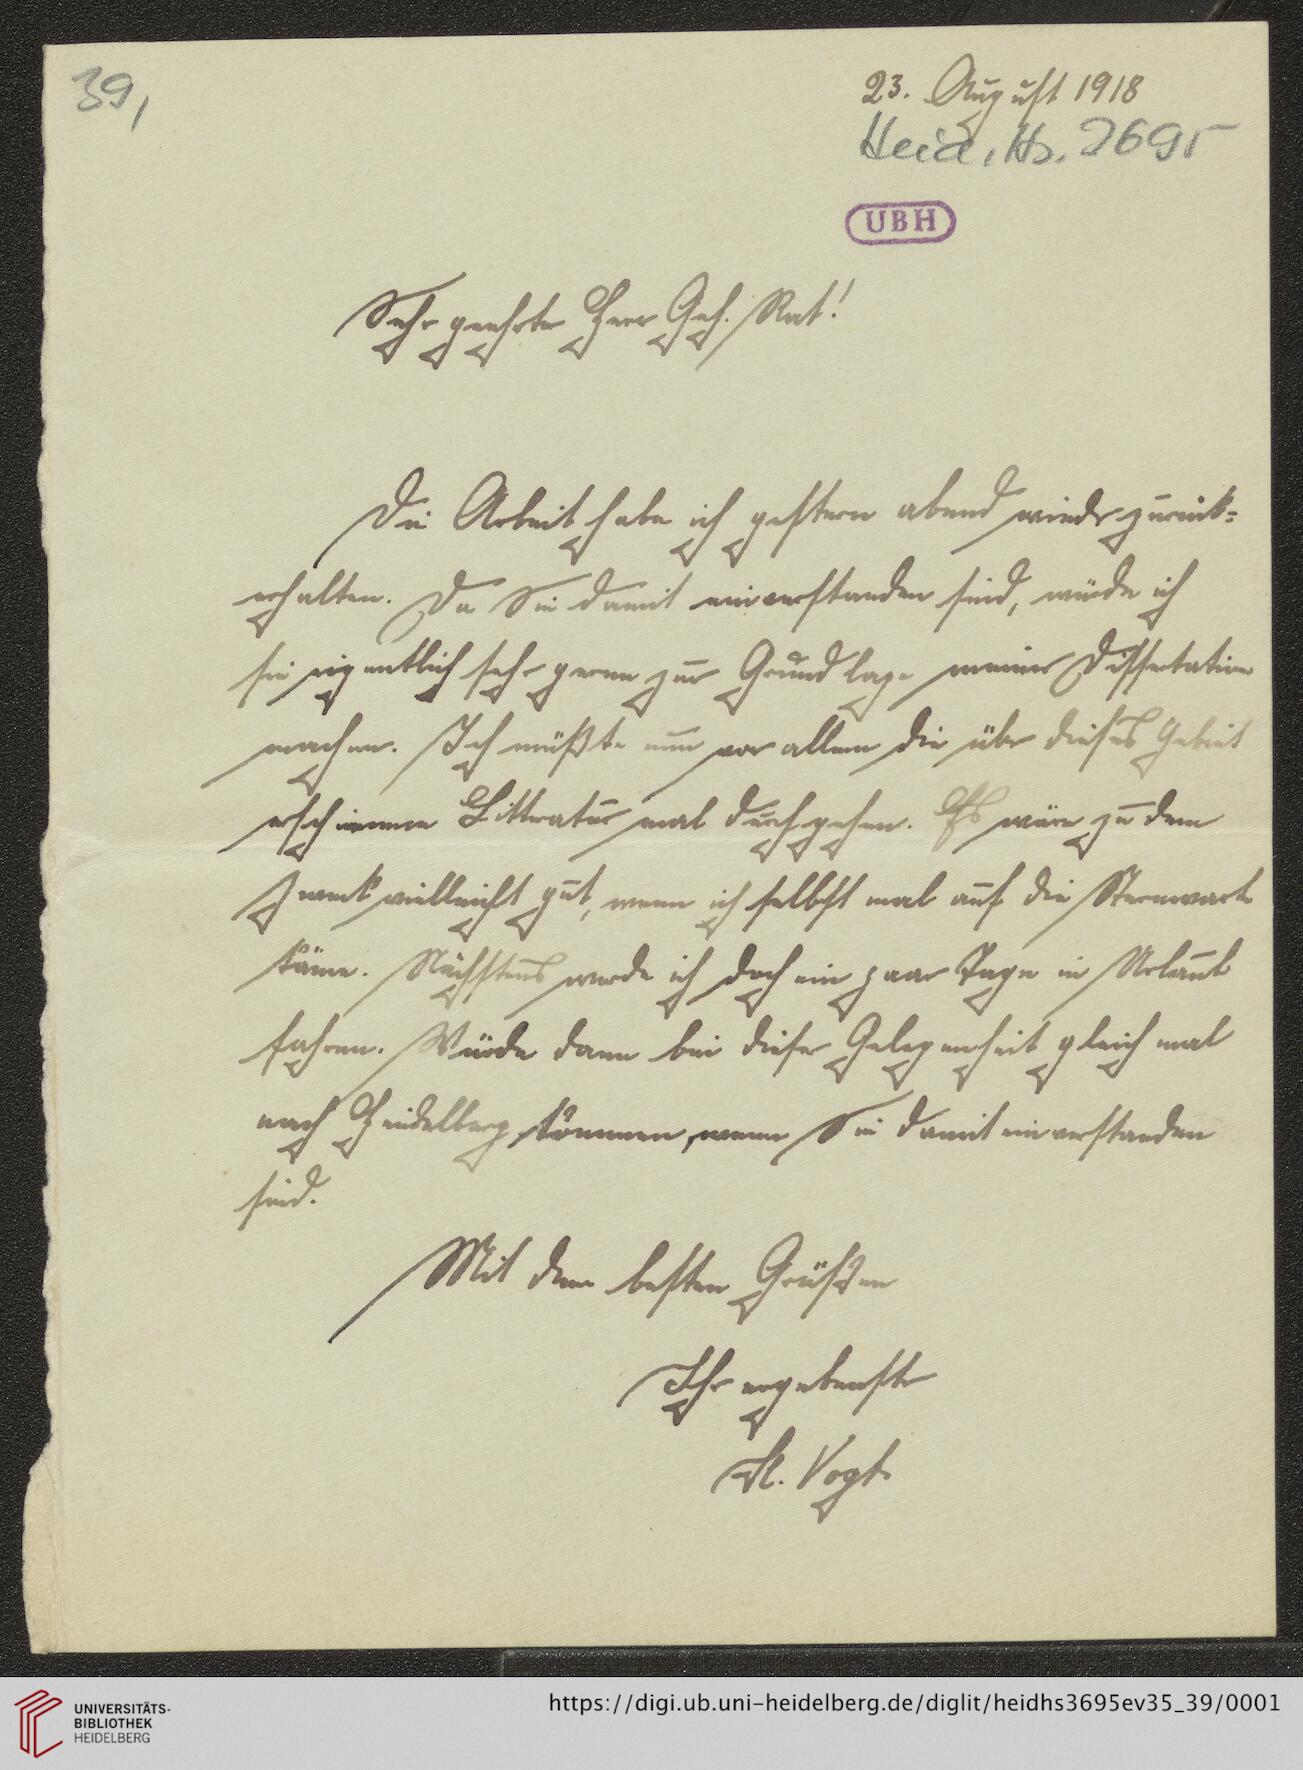 39,
23. August 1918
Heid. Hs. 3695
UBH
Sehr geehrter Herr Geh. Rat!
Die Arbeit habe ich gestern abend wieder zurück=
erhalten. Da Sie damit einverstanden sind, würde ich
sie eigentlich sehr gerne zur Grundlage meiner Dissertation
machen. Ich müßte nun vor allem die über dieses Gebiet
erschienene Litteratur mal durchgehen. Es wäre zu dem
Zweck vielleicht gut, wenn ich selbst mal auf die Sternwarte
käme. Nächstens werde ich doch ein paar Tage in Urlaub
fahren. Würde dann bei dieser Gelegenheit gleich mal
nach Heidelberg kommen, wenn Sie damit einverstanden
sind.
Mit den besten Grüßen
Ihr ergebenster
H. Vogt.
UNIVERSITÄTS-
BIBLIOTHEK
HEIDELBERG
https://digi.ub.uni-heidelberg.de/diglit/heidhs3695ev35_39/0001